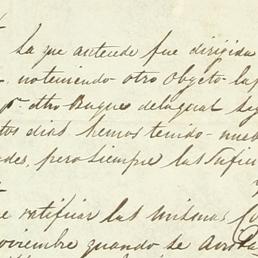 La que antecede fue dirigida
no teniendo otro Objeto la
pr. dtho Buque de la qual seg
tos dias hemos tenido nue
des, pero siempre las sufi
e ratificar las mismas Co
oviembre quando se